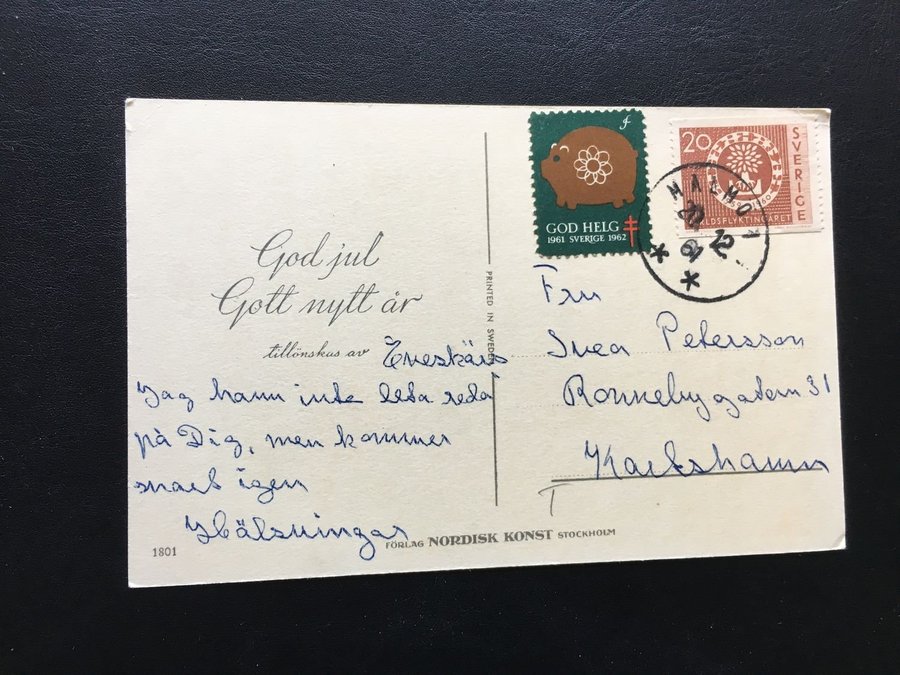 God jul
Gott nytt år
tillönskas av Eneskärs
Jag hann inte leta reda
på Dig, men kommer
snart igen
Hälsningar
1801
PRINTED IN SWEDEN
FÖRLAG NORDISK KONST STOCKHOLM
GOD HELG
1961 SVERIGE 1962
20
SVERIGE
VÄRLDSFLYKTINGÅRET
MALMÖ 1
Fru
Svea Petersson
Ronnebygatan 31
Karlshamn